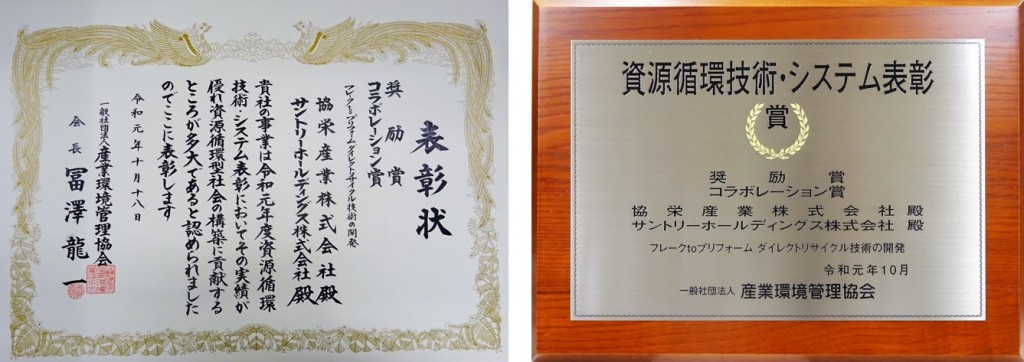 表彰状
奨励賞
コラボレーション賞
フレークtoプリフォームダイレクトリサイクル技術の開発
協栄産業株式会社殿
サントリーホールディングス株式会社殿
貴社の事業は令和元年度資源循環
技術・システム表彰においてその実績が
優れ資源循環型社会の構築に貢献する
ところが多大であると認められました
のでここに表彰します
令和元年十月十八日
一般社団法人産業環境管理協会
会長 冨澤龍一
資源循環技術・システム表彰
賞
奨励賞
コラボレーション賞
協栄産業株式会社 殿
サントリーホールディングス株式会社 殿
フレークtoプリフォーム ダイレクトリサイクル技術の開発
令和元年10月
一般社団法人 産業環境管理協会